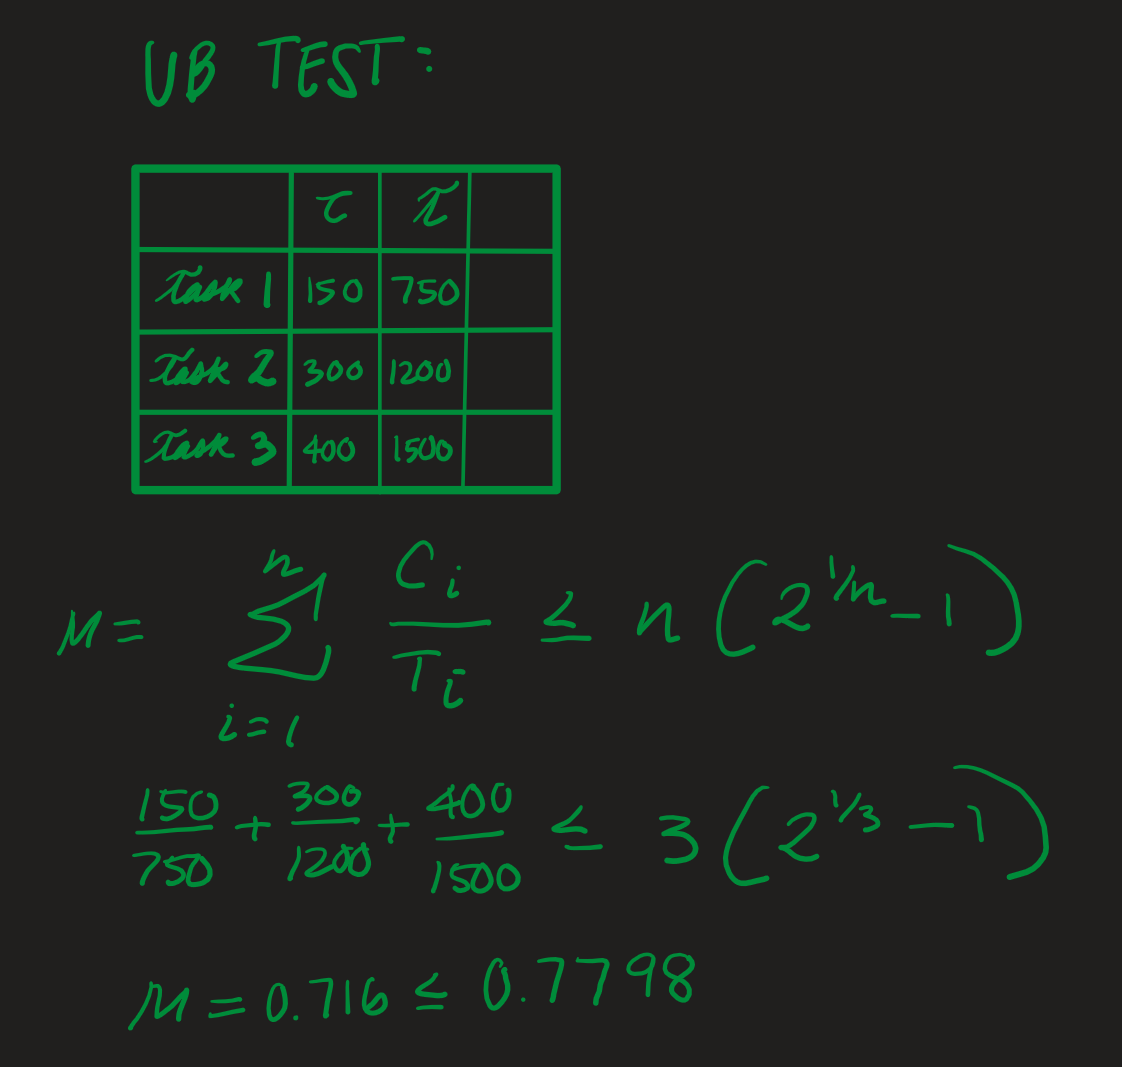 UB TEST:
C T
Task 1 150 750
Task 2 300 1200
Task 3 400 1500
μ = ∑ⁿᵢ₌₁ Cᵢ/Tᵢ ≤ n(2^(1/n) - 1)
150/750 + 300/1200 + 400/1500 ≤ 3(2^(1/3) - 1)
μ = 0.716 ≤ 0.7798